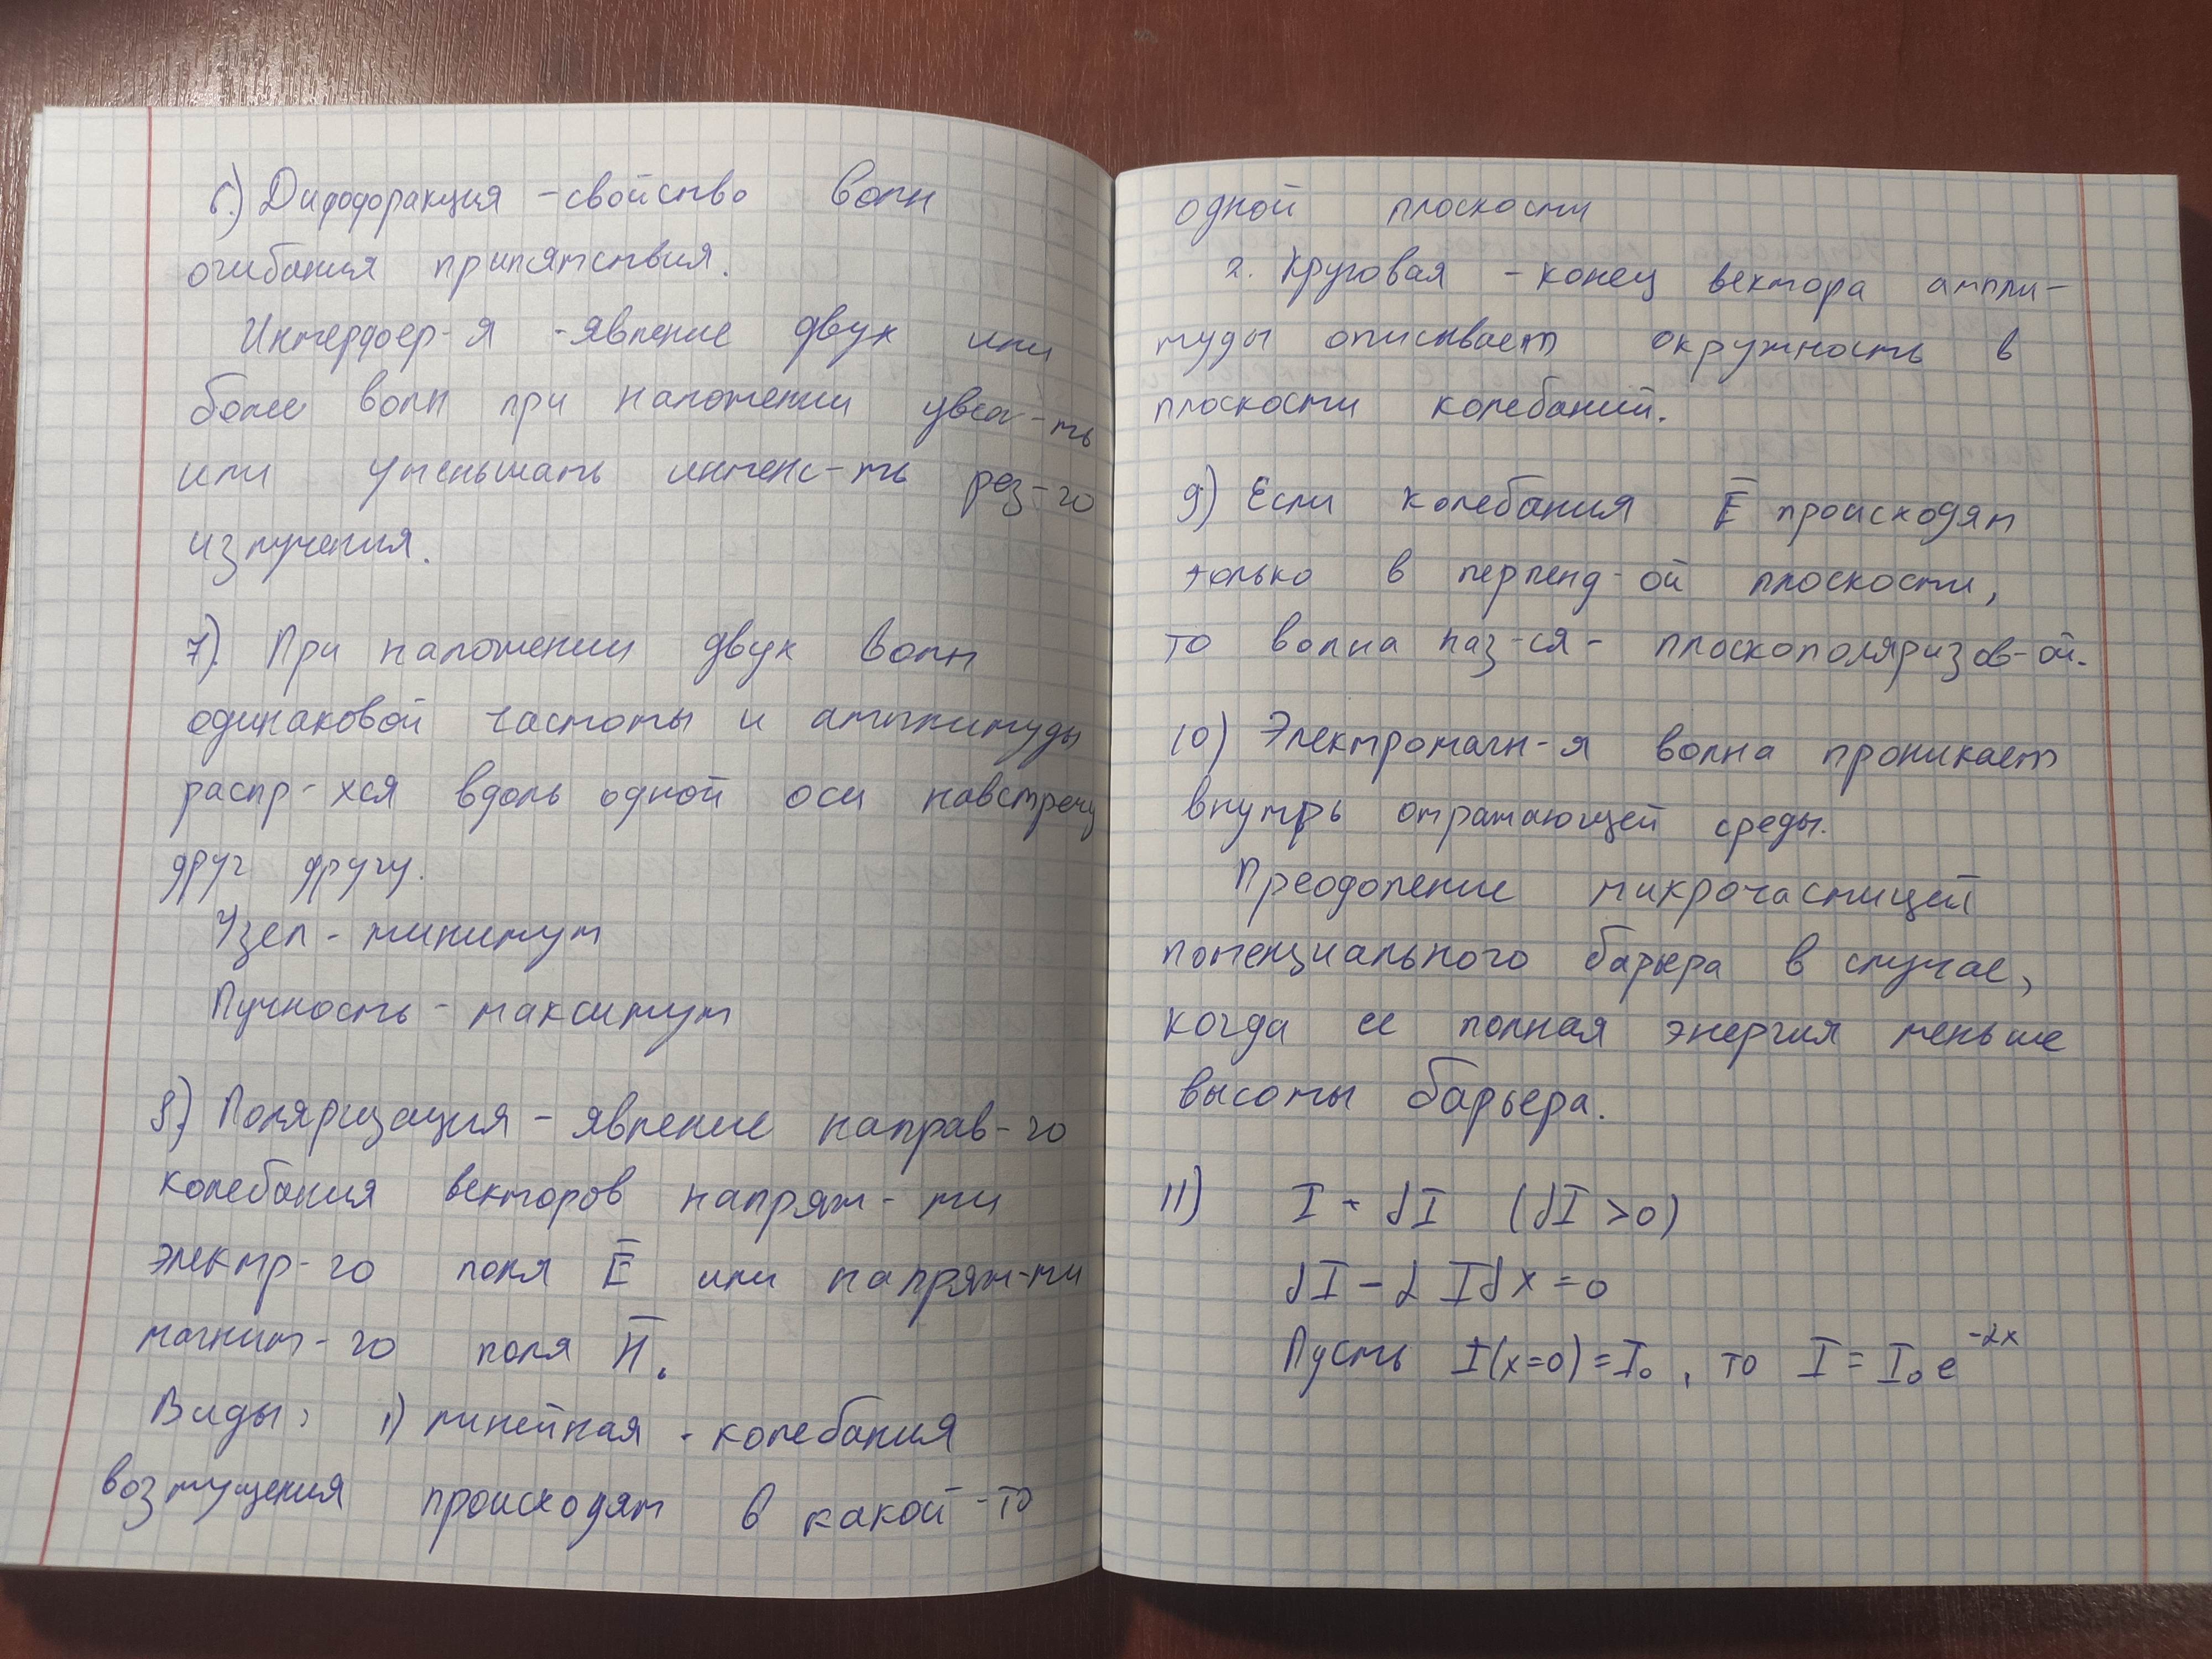 6.) Дифракция - свойство волн
огибания припятствия.
Интерфер-я - явление двух или
более волн при наложении увел-ть
или уменьшать интенс-ть рез-го
излучения.
7). При наложении двух волн
одинаковой частоты и амплитуды
распр-хся вдоль одной оси навстречу
друг другу.
Узел - минимум
Пучность - максимум
8.) Поляризация - явление направ-го
колебания векторов напряж-ти
электр-го поля E̅ или напряж-ти
магнит-го поля H̅.
Виды: 1) линейная - колебания
возмущения происходят в какой-то
одной плоскости
2. Круговая - конец вектора ампли-
туды описывает окружность в
плоскости колебаний.
9) Если колебания E̅ происходят
только в перпенд-ой плоскости,
то волна наз-ся - плоскополяризов-ой.
10) Электромагн-я волна проникает
внутрь отражающей среды.
Преодоление микрочастицей
потенциального барьера в случае,
когда ее полная энергия меньше
высоты барьера.
11) I - dI (dI > 0)
dI - α I dx = 0
Пусть I(x=0) = I₀, то I = I₀ e^-αx